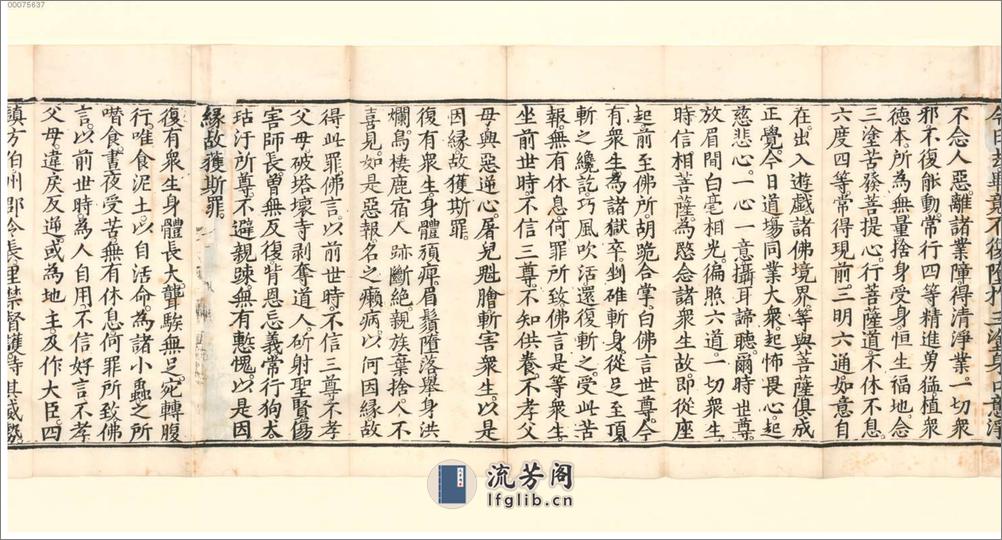 00075637
不念人惡。離諸業障。得清淨業。一切衆
邪不復能動。常行四等精進勇猛植衆
德本。所為無量捨身受身。恒生福地。念
三塗苦發菩提心。行菩薩道不休不息。
六度四等常得現前。三明六通如意自
在。出入遊戲諸佛境界。等與菩薩俱成
正覺。今日道場同業大衆。起怖畏心。起
慈悲心。一心一意攝耳諦聽。爾時世尊。
放眉間白毫相光。徧照六道。一切衆生。
時信相菩薩。為愍念諸衆生故。即從座
起。前至佛所。胡跪合掌。白佛言世尊。今
有衆生。為諸獄卒。剉碓斬身。從足至頂。
斬之纔訖巧風吹活。還復斬之。受此苦
報。無有休息。何罪所致。佛言。是等衆生。
坐前世時。不信三尊。不知供養。不孝父
母。興惡逆心。屠兒魁膾。斬害衆生。以是
因緣故獲斯罪。
復有衆生身體頑痺。眉鬚墮落。舉身洪
爛。鳥棲鹿宿人跡斷絶。親族棄捨。人不
喜見。如是惡報名之癩病。以何因緣故
得此罪。佛言。以前世時。不信三尊不孝
父母。破塔壞寺剥奪道人。斫射聖賢傷
害師長。曾無反復背恩忘義。常行狗犬。
玷汙所尊不避親踈。無有慙愧。以是因
緣故獲斯罪。
復有衆生身體長大。聾騃無足。宛轉腹
行。唯食泥土。以自活命。為諸小蟲之所
噆食。晝夜受苦無有休息。何罪所致。佛
言。以前世時。為人自用不信好言。不孝
父母。違戾反逆。或為地主。及作大臣。四
鎮方伯州郡令長里禁督護恃其威勢
流芳阁
lfglib.cn